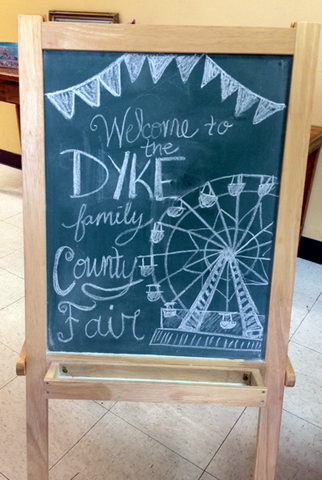 Welcome to
the
DYKE
family
County
Fair